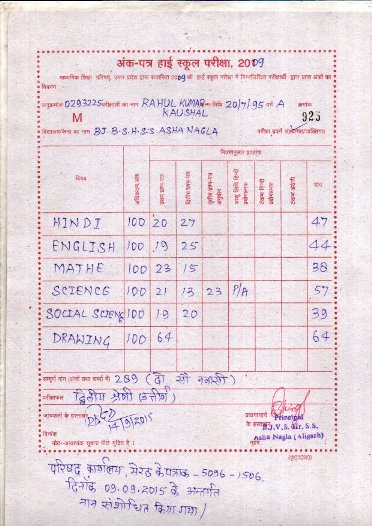 अंक-पत्र हाई स्कूल परीक्षा, 2009
माध्यमिक शिक्षा परिषद्, उत्तर प्रदेश द्वारा सञ्चालित 2009 की हाई स्कूल परीक्षा में निम्नलिखित परीक्षार्थी द्वारा प्राप्त अंकों का
विवरण
अनुक्रमांक 0293225 परीक्षार्थी का नाम RAHUL KUMAR जन्म-तिथि 20/7/95 वर्ग A क्रमांक
M KAUSHAL 925
विद्यालय/केन्द्र का नाम BJ.B.S.H.S.S ASHA NAGLA परीक्षा प्रकार संस्थागत/व्यक्तिगत
नियमानुसार प्राप्तांक
विषय अधिकतम अंक प्रथम प्रश्न-पत्र द्वितीय प्रश्न-पत्र योग
HINDI 100 20 27 47
ENGLISH 100 19 25 44
MATHE 100 23 15 38
SCIENCE 100 21 13 23 P/A 57
SOCIAL SCIENC 100 19 20 39
DRAWING 100 64 64
सम्पूर्ण योग (अंकों तथा शब्दों में) 289 (दो सौ नवासी)
परीक्षाफल द्वितीय श्रेणी (उत्तीर्ण)
जांचकर्ता के हस्ताक्षर प्रधानाचार्य Principal
14/9/2015 के हस्ताक्षर B.J.V.S. Gir. S.S.
दिनांक Asha Nagla (Aligarh)
नोट-आवश्यक सूचना पीछे मुद्रित है।
परिषद कार्यालय मेरठ के पत्रांक - 5096 - 1506,
दिनांक 09.09.2015 के अन्तर्गत
नाम संशोधित किया गया।